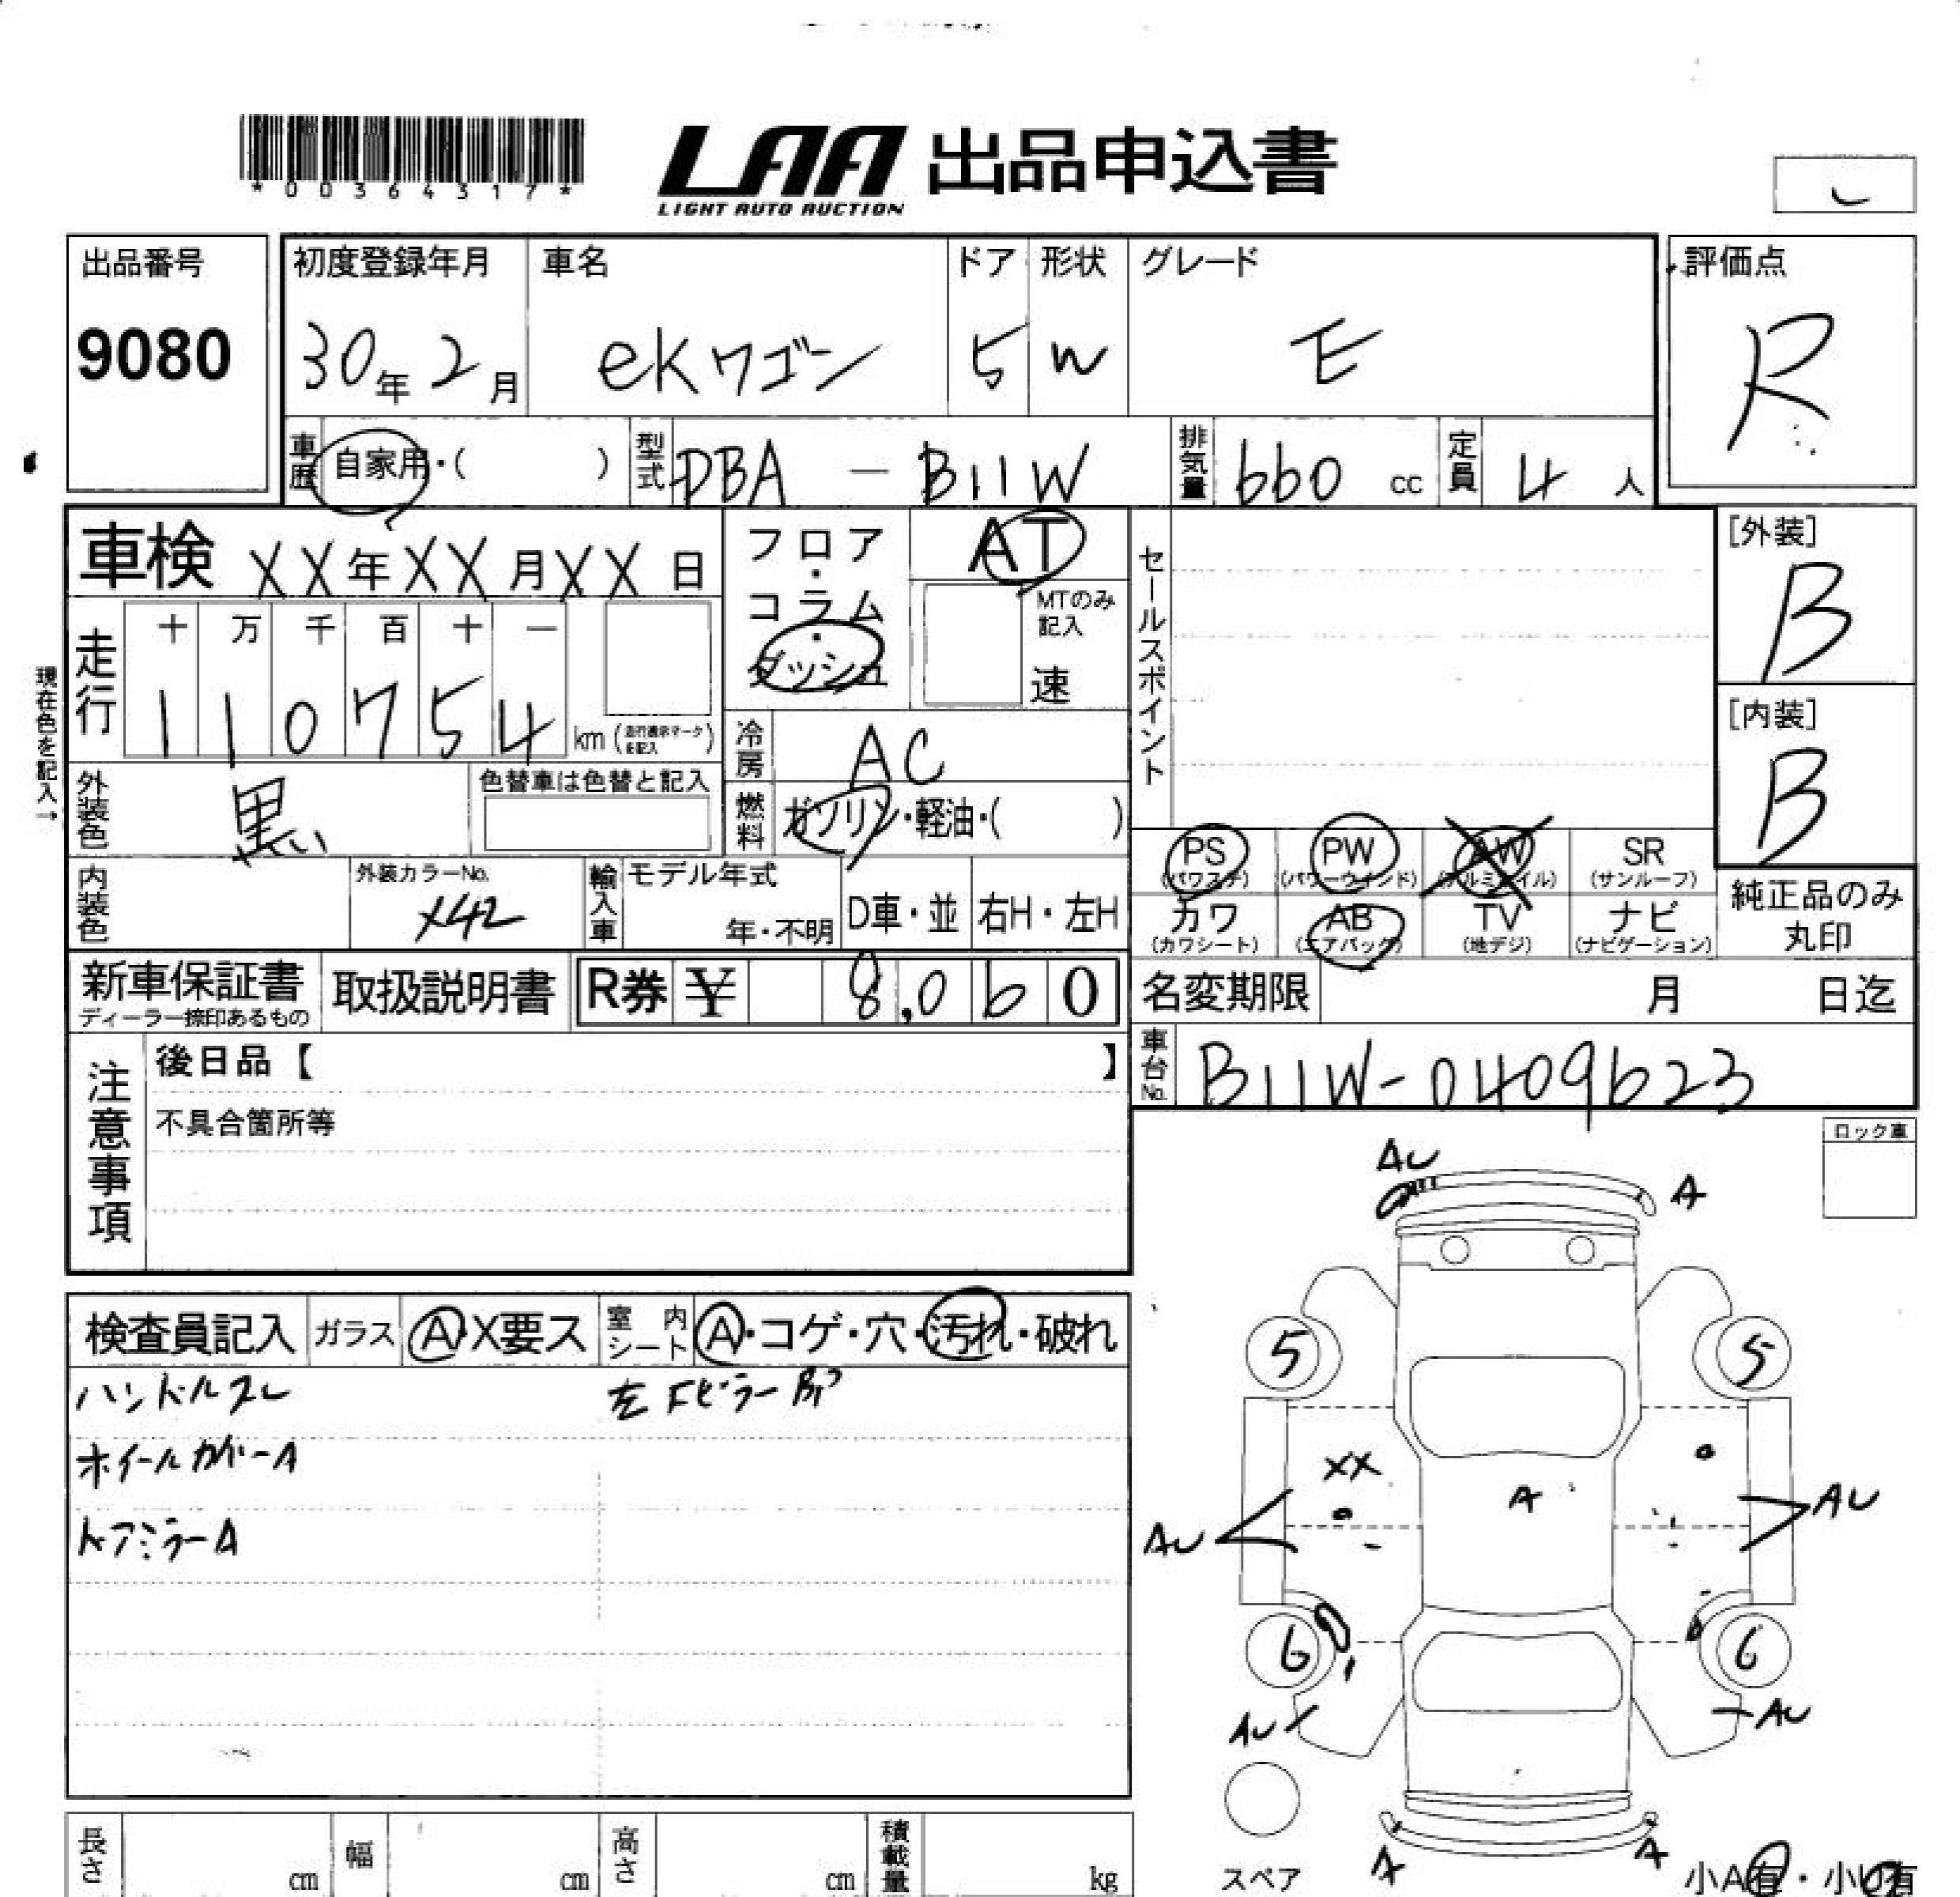 *00364317*
LAA 出品申込書
LIGHT AUTO AUCTION
出品番号
9080
初度登録年月 車名 ドア 形状 グレード
30年2月 eKワゴン 5 W E
評価点
R
車歴 自家用・( ) 型式 DBA - B11W 排気量 660 cc 定員 4 人
車検 XX年XX月XX日
フロア・コラム・ダッシュ
AT
MTのみ記入
速
セールスポイント
[外装]
B
[内装]
B
現在色を記入→
走行 十 万 千 百 十 一
1 1 0 7 5 4 km
冷房 AC
外装色 黒 色替車は色替と記入
燃料 ガソリン・軽油・( )
PS PW AW SR
(パワステ) (パワーウインド) (アルミホイル) (サンルーフ)
カワ AB TV ナビ
(カワシート) (エアバッグ) (地デジ) (ナビゲーション)
純正品のみ
丸印
内装色 外装カラーNo. X42 輸入車 モデル年式 年・不明 D車・並 右H・左H
新車保証書 取扱説明書 R券 ¥ 8,060
ディーラー捺印あるもの
名変期限 月 日迄
車台No. B11W-0409623
注意事項
後日品【 】
不具合箇所等
ロック車
検査員記入 ガラス A・X要ス 室内シート A・コゲ・穴・汚れ・破れ
ハンドルスレ 左Fピラー
ホイールカバーA
ドアミラーA
AU A
5 5
XX
A
AU AU
6 6
AU AU
A A
スペア
小A有・小U有
長さ cm 幅 cm 高さ cm 積載量 kg